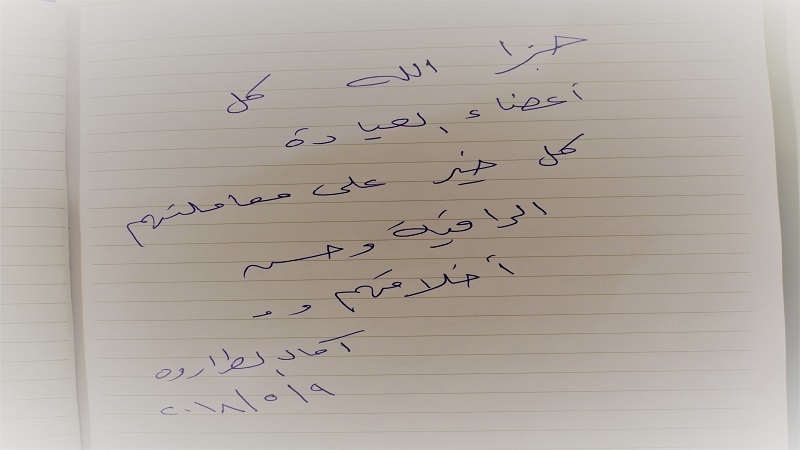 جزا الله كل
أعضاء العيادة
كل خير على معاملتهم
الراقية وحسن
أخلاقهم ..
٢٠١٨/٥/٩